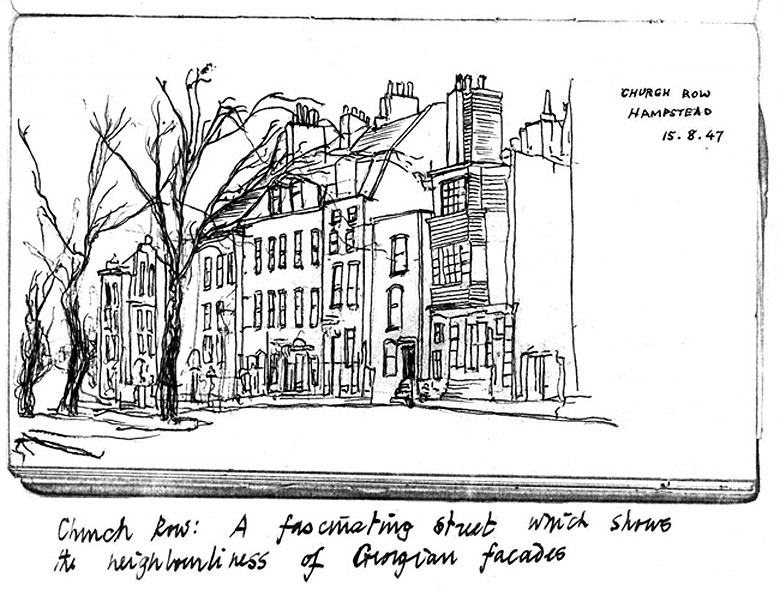 CHURCH ROW
HAMPSTEAD
15.8.47
Church Row: A fascinating street which shows
the neighbourliness of Georgian facades